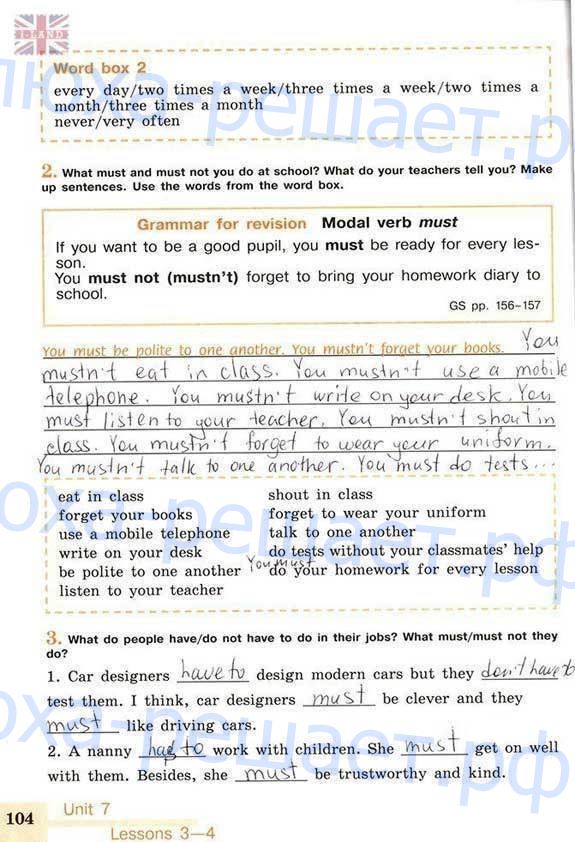 I-LAND
Word box 2
every day/two times a week/three times a week/two times a
month/three times a month
never/very often
2. What must and must not you do at school? What do your teachers tell you? Make
up sentences. Use the words from the word box.
Grammar for revision Modal verb must
If you want to be a good pupil, you must be ready for every les-
son.
You must not (mustn't) forget to bring your homework diary to
school.
GS pp. 156–157
You must be polite to one another. You mustn't forget your books. You
mustn't eat in class. You mustn't use a mobile
telephone. You mustn't write on your desk. You
must listen to your teacher. You mustn't shout in
class. You mustn't forget to wear your uniform.
You mustn't talk to one another. You must do tests...
eat in class shout in class
forget your books forget to wear your uniform
use a mobile telephone talk to one another
write on your desk do tests without your classmates' help
be polite to one another You must do your homework for every lesson
listen to your teacher
3. What do people have/do not have to do in their jobs? What must/must not they
do?
1. Car designers have to design modern cars but they don't have to
test them. I think, car designers must be clever and they
must like driving cars.
2. A nanny has to work with children. She must get on well
with them. Besides, she must be trustworthy and kind.
104 Unit 7
Lessons 3—4
люха-решает.рф
юха-решает.рф
юха-решает.рф